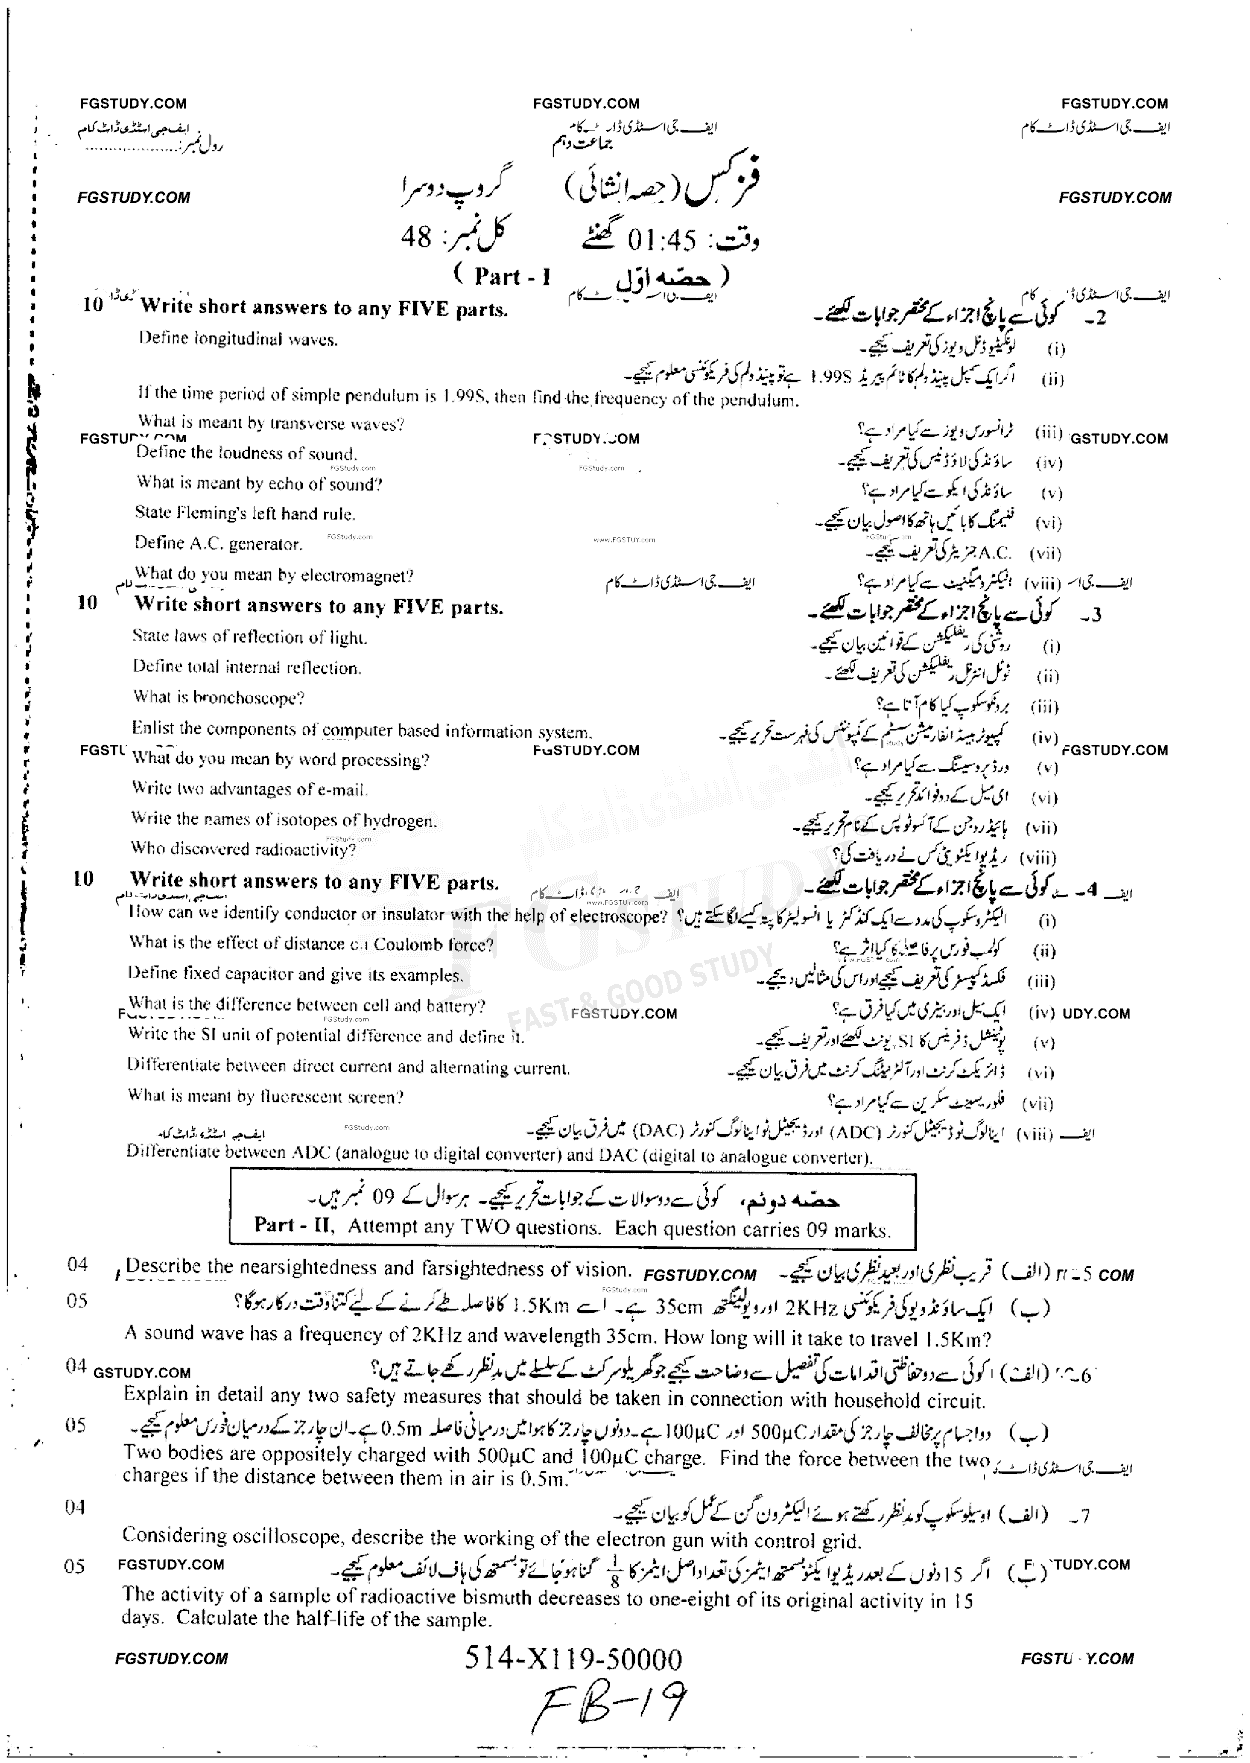 FGSTUDY.COM FGSTUDY.COM FGSTUDY.COM
ایف جی اسٹڈی ڈاٹ کام ایف جی اسٹڈی ڈاٹ کام ایف جی اسٹڈی ڈاٹ کام
رول نمبر:................... جماعت دہم
FGSTUDY.COM فزکس (حصہ انشائی) گروپ دوسرا FGSTUDY.COM
وقت: 01:45 گھنٹے کل نمبر: 48
( Part - I حصّہ اوّل )
10 Write short answers to any FIVE parts. 2- کوئی سے پانچ اجزاء کے مختصر جوابات لکھئے۔
Define longitudinal waves. (i) لونگیٹیوڈنل ویوز کی تعریف کیجیے۔
(ii) اگر ایک سمپل پینڈولم کا ٹائم پیریڈ 1.99S ہے تو پینڈولم کی فریکوئنسی معلوم کیجیے۔
If the time period of simple pendulum is 1.99S, then find the frequency of the pendulum.
What is meant by transverse waves? (iii) ٹرانسورس ویوز سے کیا مراد ہے؟
Define the loudness of sound. (iv) ساؤنڈ کی لاؤڈنیس کی تعریف کیجیے۔
What is meant by echo of sound? (v) ساؤنڈ کی ایکو سے کیا مراد ہے؟
State Fleming's left hand rule. (vi) فلیمنگ کا بائیں ہاتھ کا اصول بیان کیجیے۔
Define A.C. generator. (vii) A.C. جنریٹر کی تعریف کیجیے۔
What do you mean by electromagnet? (viii) الیکٹرومیگنیٹ سے کیا مراد ہے؟
10 Write short answers to any FIVE parts. 3- کوئی سے پانچ اجزاء کے مختصر جوابات لکھئے۔
State laws of reflection of light. (i) روشنی کی ریفلیکشن کے قوانین بیان کیجیے۔
Define total internal reflection. (ii) ٹوٹل انٹرنل ریفلیکشن کی تعریف لکھئے۔
What is bronchoscope? (iii) برونکوسکوپ کیا کام آتا ہے؟
Enlist the components of computer based information system. (iv) کمپیوٹر بیسڈ انفارمیشن سسٹم کے کمپونینٹس کی فہرست تحریر کیجیے۔
What do you mean by word processing? (v) ورڈ پروسیسنگ سے کیا مراد ہے؟
Write two advantages of e-mail. (vi) ای میل کے دو فوائد تحریر کیجیے۔
Write the names of isotopes of hydrogen. (vii) ہائیڈروجن کے آئسوٹوپس کے نام تحریر کیجیے۔
Who discovered radioactivity? (viii) ریڈیو ایکٹیویٹی کس نے دریافت کی؟
10 Write short answers to any FIVE parts. 4- کوئی سے پانچ اجزاء کے مختصر جوابات لکھئے۔
How can we identify conductor or insulator with the help of electroscope? (i) الیکٹروسکوپ کی مدد سے ایک کنڈکٹر یا انسولیٹر کا پتہ کیسے لگا سکتے ہیں؟
What is the effect of distance on Coulomb force? (ii) کولمب فورس پر فاصلے کا کیا اثر ہے؟
Define fixed capacitor and give its examples. (iii) فکسڈ کپیسٹر کی تعریف کیجیے اور اس کی مثالیں دیجیے۔
What is the difference between cell and battery? (iv) ایک سیل اور بیٹری میں کیا فرق ہے؟
Write the SI unit of potential difference and define it. (v) پوٹینشل ڈفرینس کا SI یونٹ لکھئے اور تعریف کیجیے۔
Differentiate between direct current and alternating current. (vi) ڈائریکٹ کرنٹ اور آلٹرنیٹنگ کرنٹ میں فرق بیان کیجیے۔
What is meant by fluorescent screen? (vii) فلوریسینٹ سکرین سے کیا مراد ہے؟
(viii) اینالوگ ٹو ڈیجیٹل کنورٹر (ADC) اور ڈیجیٹل ٹو اینالوگ کنورٹر (DAC) میں فرق بیان کیجیے۔
Differentiate between ADC (analogue to digital converter) and DAC (digital to analogue converter).
حصّہ دوئم، کوئی سے دو سوالات کے جوابات تحریر کیجیے۔ ہر سوال کے 09 نمبر ہیں۔
Part - II, Attempt any TWO questions. Each question carries 09 marks.
04 Describe the nearsightedness and farsightedness of vision. FGSTUDY.COM 5- (الف) قریب نظری اور بعید نظری بیان کیجیے۔
05 (ب) ایک ساؤنڈ ویو کی فریکوئنسی 2KHz اور ویولینگتھ 35cm ہے۔ اسے 1.5Km کا فاصلہ طے کرنے کے لیے کتنا وقت درکار ہوگا؟
A sound wave has a frequency of 2KHz and wavelength 35cm. How long will it take to travel 1.5Km?
04 GSTUDY.COM 6- (الف) کوئی سے دو حفاظتی اقدامات کی تفصیل سے وضاحت کیجیے جو گھریلو سرکٹ کے سلسلے میں مدنظر رکھے جاتے ہیں؟
Explain in detail any two safety measures that should be taken in connection with household circuit.
05 (ب) دو اجسام پر مخالف چارجز کی مقدار 500μC اور 100μC ہے۔ دونوں چارجز کا ہوا میں درمیانی فاصلہ 0.5m ہے۔ ان چارجز کے درمیان فورس معلوم کیجیے۔
Two bodies are oppositely charged with 500μC and 100μC charge. Find the force between the two
charges if the distance between them in air is 0.5m.
04 7- (الف) اوسیلوسکوپ کو مدنظر رکھتے ہوئے الیکٹرون گن کے عمل کو بیان کیجیے۔
Considering oscilloscope, describe the working of the electron gun with control grid.
05 FGSTUDY.COM (ب) اگر 15 دنوں کے بعد ریڈیو ایکٹو بسمتھ ایٹمز کی تعداد اصل ایٹمز کا 1/8 گنا ہو جائے تو بسمتھ کی ہاف لائف معلوم کیجیے۔
The activity of a sample of radioactive bismuth decreases to one-eight of its original activity in 15
days. Calculate the half-life of the sample.
FGSTUDY.COM 514-X119-50000 FGSTU Y.COM
FB-19